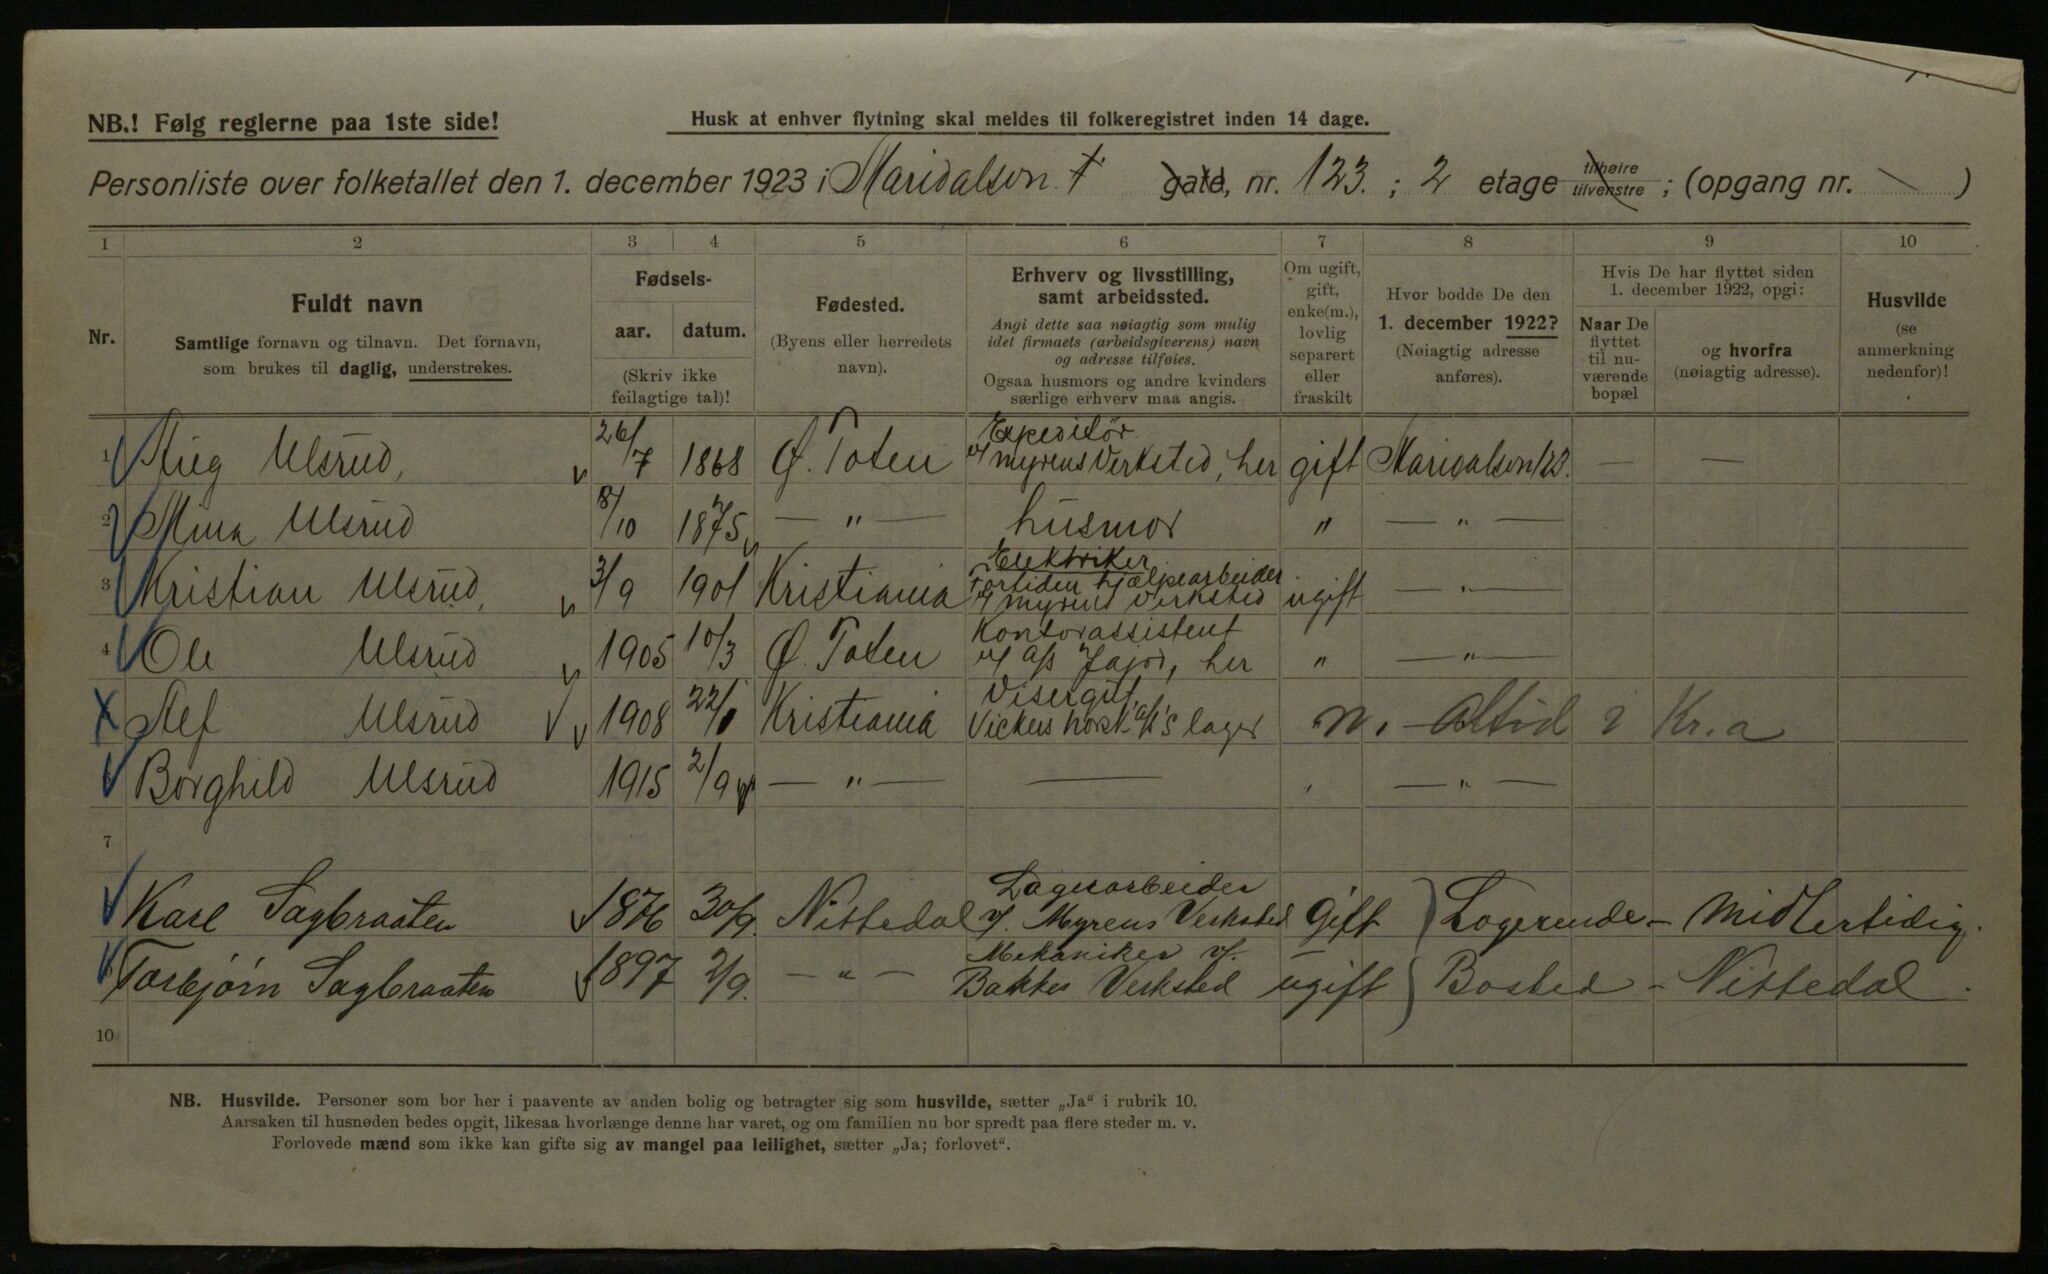 NB.! Følg reglerne paa 1ste side!
Husk at enhver flytning skal meldes til folkeregistret inden 14 dage.
Personliste over folketallet den 1. december 1923 i Maridalsvn. gate, nr. 123. ; 2 etage tilhøire tilvenstre ; (opgang nr. )
1 2 3 4 5 6 7 8 9 10
Nr.
Fuldt navn
Samtlige fornavn og tilnavn. Det fornavn,
som brukes til daglig, understrekes.
Fødsels-
aar. datum.
(Skriv ikke
feilagtige tal)!
Fødested.
(Byens eller herredets
navn).
Erhverv og livsstilling,
samt arbeidssted.
Angi dette saa nøiagtig som mulig
idet firmaets (arbeidsgiverens) navn
og adresse tilføies.
Ogsaa husmors og andre kvinders
særlige erhverv maa angis.
Om ugift,
gift,
enke(m.),
lovlig
separert
eller
fraskilt
Hvor bodde De den
1. december 1922?
(Nøiagtig adresse
anføres).
Hvis De har flyttet siden
1. december 1922, opgi:
Naar De
flyttet
til nu-
værende
bopæl
og hvorfra
(nøiagtig adresse).
Husvilde
(se
anmerkning
nedenfor)!
Expeditør
1 Ulsrud, 26/7 1868 Ø. Toten v/ Myrens Verksted, her gift Maridalsvn 123. — —
2 Mina Ulsrud 8/10 1875 — " — husmor " — " —
Elektriker
3 Kristian Ulsrud, 3/9 1901 Kristiania Fortiden hjælpearbeider ugift — " —
v/ Myrens Verksted
Kontorassistent
4 Ole Ulsrud 1905 10/3 Ø. Toten v/ A/S her " — " —
Visergut
Ulsrud 1908 22/1 Kristiania Vickers norsk A/S's lager n. - Altid i Kr.a
Borghild Ulsrud 1915 2/9 — " — — — " —
7
Lagerarbeider
Karl Sagbraaten 1876 30/9. Nittedal v/. Myrens Verksted Gift Logerende - Midlertidig.
Mekaniker v/.
Torbjørn Sagbraaten 1897 2/9. — " — Bakkes Verksted ugift Bosted - Nittedal.
10
NB. Husvilde. Personer som bor her i paavente av anden bolig og betragter sig som husvilde, sætter „Ja" i rubrik 10.
Aarsaken til husnøden bedes opgit, likesaa hvorlænge denne har varet, og om familien nu bor spredt paa flere steder m. v.
Forlovede mænd som ikke kan gifte sig av mangel paa leilighet, sætter „Ja; forlovet".